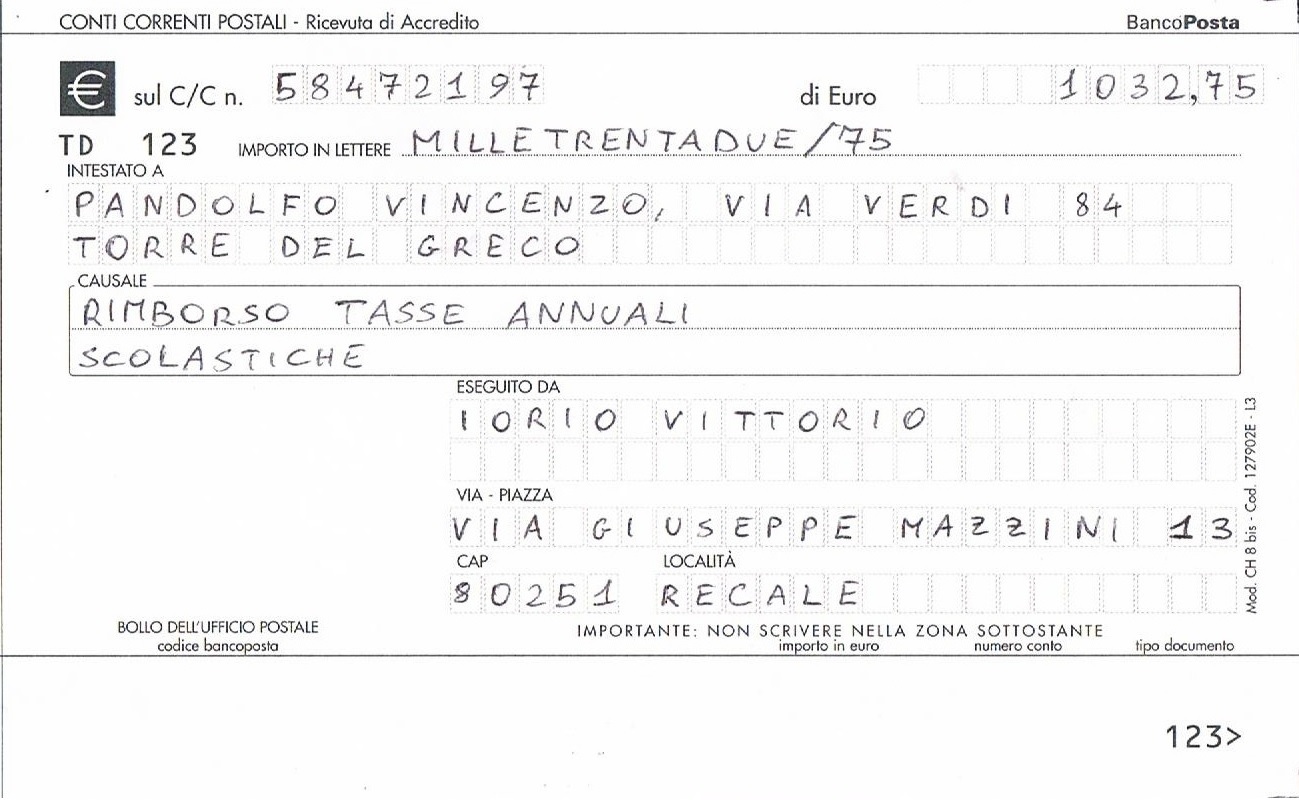 CONTI CORRENTI POSTALI - Ricevuta di Accredito BancoPosta
€ sul C/C n. 58472197 di Euro 1032,75
TD 123 IMPORTO IN LETTERE MILLETRENTADUE/75
INTESTATO A
PANDOLFO VINCENZO, VIA VERDI 84
TORRE DEL GRECO
CAUSALE
RIMBORSO TASSE ANNUALI
SCOLASTICHE
ESEGUITO DA
IORIO VITTORIO
VIA - PIAZZA
VIA GIUSEPPE MAZZINI 13
CAP LOCALITÀ
80251 RECALE
Mod. CH 8 bis - Cod. 127902E - L3
BOLLO DELL'UFFICIO POSTALE IMPORTANTE: NON SCRIVERE NELLA ZONA SOTTOSTANTE
codice bancoposta importo in euro numero conto tipo documento
123>